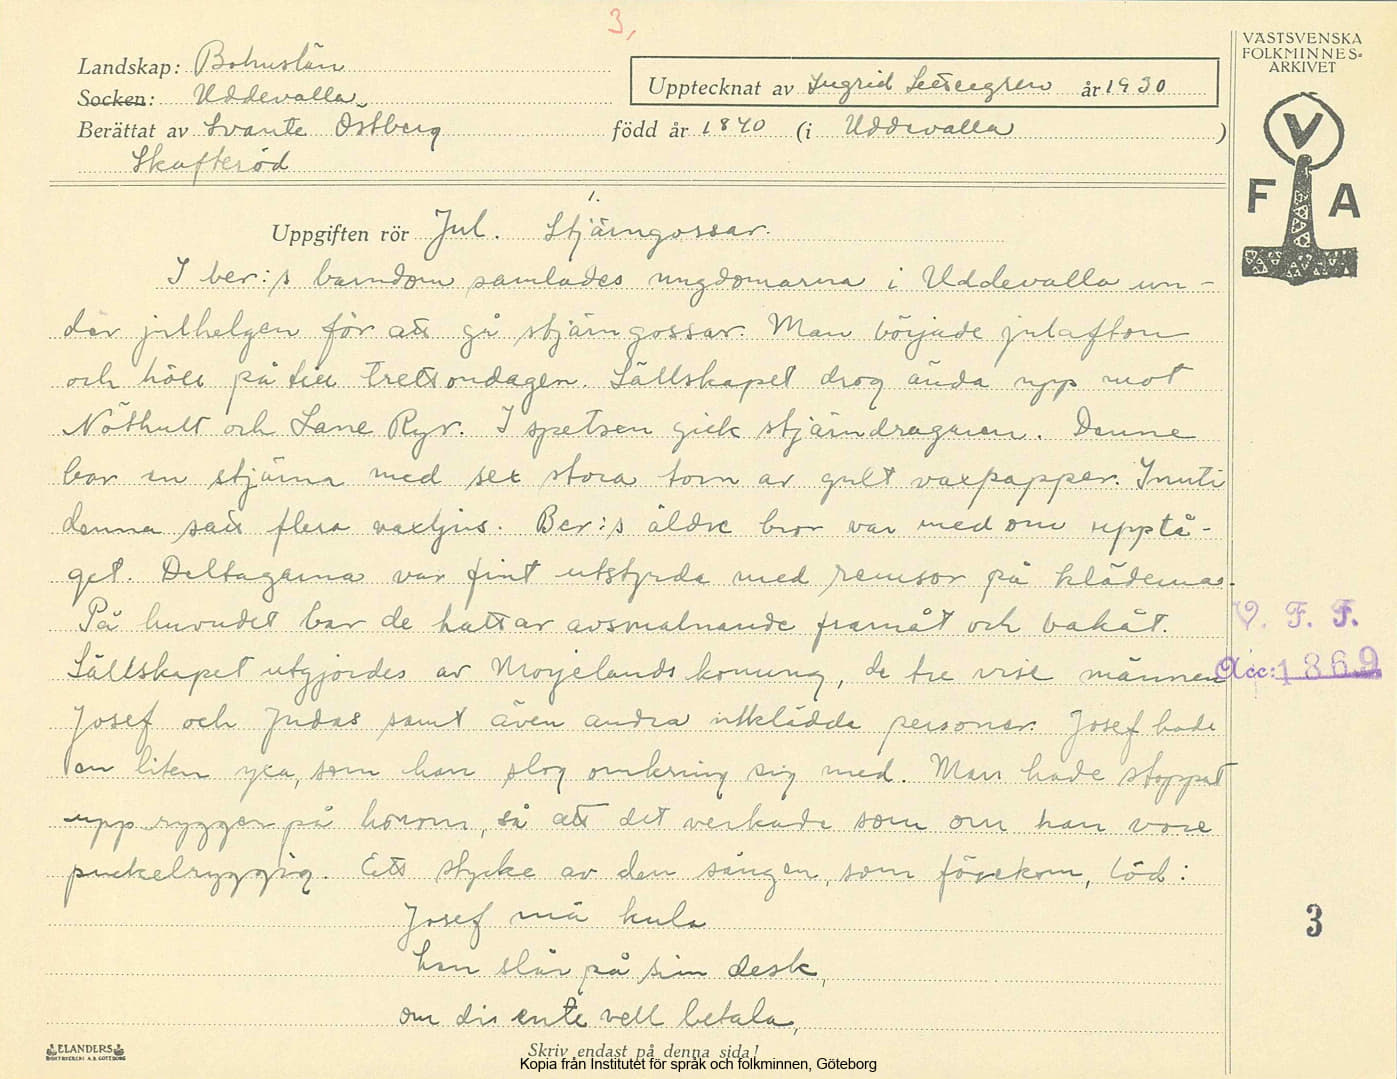 3,
VÄSTSVENSKA
FOLKMINNES=
ARKIVET
V
F A
Landskap: Bohuslän
Socken: Uddevalla
Upptecknat av Ingrid år 1930
Berättat av Svante Östberg född år 1840 (i Uddevalla )
Skafteröd
1.
Uppgiften rör Jul. Stjärngossar.
I ber:s barndom samlades ungdomarna i Uddevalla un-
der julhelgen för att gå stjärngossar. Man började julafton
och höll på till trettondagen. Sällskapet drog ända upp mot
Nöthult och Lane Ryr. I spetsen gick stjärndragaren. Denne
bar en stjärna med sex stora torn av gult vaxpapper. Inuti
denna satt flera vaxljus. Ber:s äldre bror var med om upptå-
get. Deltagarna var fint utstyrda med remsor på kläderna.
På huvudet bar de hattar avsmalnande framåt och bakåt.
Sällskapet utgjordes av Morjelands konung, de tre vise männen
Josef och Judas samt även andra utklädda personer. Josef hade
en liten yxa, som han slog omkring sig med. Man hade stoppat
upp ryggen på honom, så att det verkade som om han vore
puckelryggig. Ett stycke av den sången, som förekom, löd:
Josef må kula
han slår på sin desk,
om dis ente vell betala,
V. F. F.
Acc: 1869
3
ELANDERS
BOKTRYCKERI A.B. GÖTEBORG
Skriv endast på denna sida!
Kopia från Institutet för språk och folkminnen, Göteborg